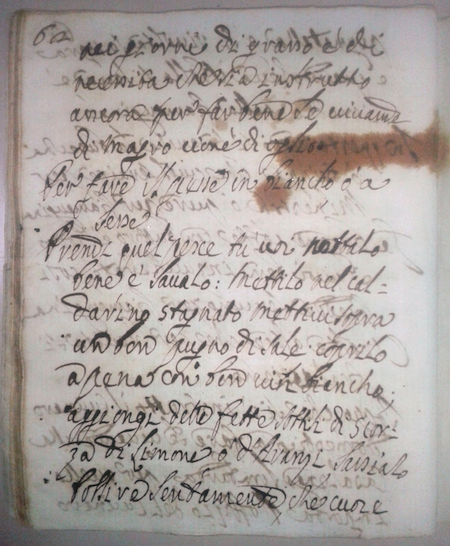 62
nei giorni di grasso e di
necessita che sia instrutto
ancora per far bene le vivande
di magro cioè di
Per fare il pesse in biancho o a
lesse
Prendi quel pesce tu voi nettilo
bene e lavalo: mettilo nel cal-
darino stagnato mettivi sopra
un bon pugno di sale coprilo
apena con bon vin biancho;
aggiongi dele fette sotili di scor-
za di limone o d'aranzi lassialo
bollire lentamente che cuore